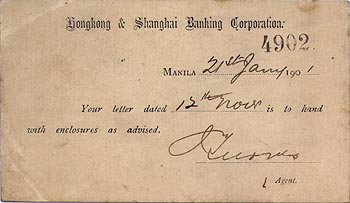 Hongkong & Shanghai Banking Corporation.
4902
MANILA 21st Jany 1901
Your letter dated 12th Novr is to hand
with enclosures as advised.
Agent.